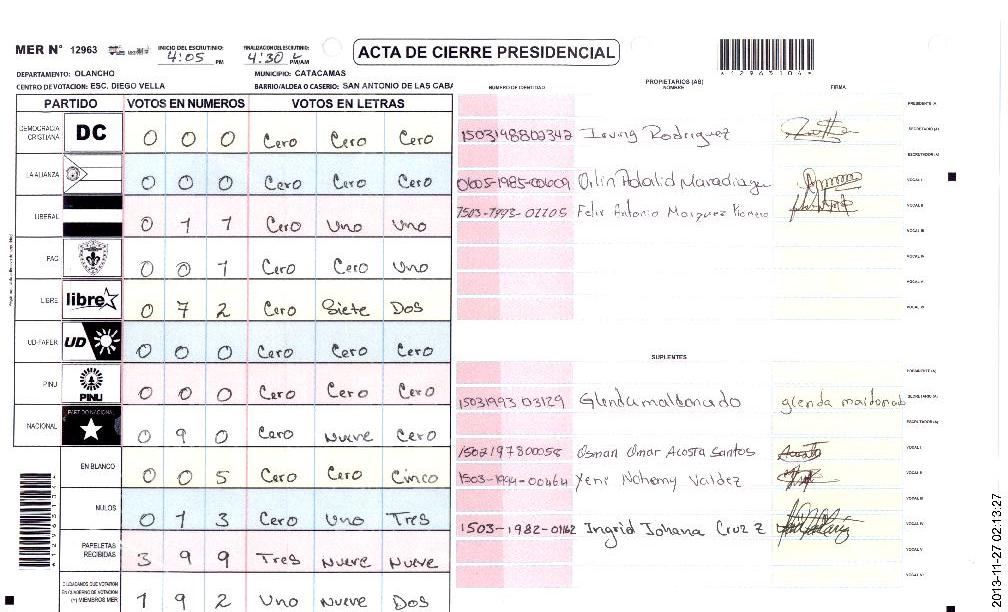 MER N° 12963
INICIO DEL ESCRUTINIO: 4:05 PM
FINALIZACION DEL ESCRUTINIO: 4:30 PM/AM
ACTA DE CIERRE PRESIDENCIAL
DEPARTAMENTO: OLANCHO MUNICIPIO: CATACAMAS
CENTRO DE VOTACION: ESC. DIEGO VELLA BARRIO/ALDEA O CASERIO: SAN ANTONIO DE LAS CABA
PARTIDO VOTOS EN NUMEROS VOTOS EN LETRAS
DEMOCRACIA CRISTIANA DC 0 0 0 Cero Cero Cero
LA ALIANZA 0 0 0 Cero Cero Cero
LIBERAL 0 1 1 Cero Uno Uno
PAC 0 0 1 Cero Cero Uno
LIBRE libre 0 7 2 Cero Siete Dos
UD-FAPER UD 0 0 0 Cero Cero Cero
PINU PINU 0 0 0 Cero Cero Cero
NACIONAL PARTIDO NACIONAL 0 9 0 Cero Nueve Cero
EN BLANCO 0 0 5 Cero Cero Cinco
NULOS 0 1 3 Cero Uno Tres
PAPELETAS RECIBIDAS 3 9 9 Tres Nueve Nueve
CIUDADANOS QUE VOTARON EN CUADERNO DE VOTACION (+) MIEMBROS MER 1 9 2 Uno Nueve Dos
PROPIETARIOS (AS)
NUMERO DE IDENTIDAD NOMBRE FIRMA
PRESIDENTE (A)
1503198802342 Irving Rodriguez SECRETARIO (A)
ESCRUTADOR (A)
0605-1985-00609 Orlin Adalid VOCAL I
1503-1993-01105 Felix Antonio Marquez VOCAL II
VOCAL III
VOCAL IV
VOCAL V
VOCAL VI
SUPLENTES
PRESIDENTE (A)
15031993 03129 Glenda maldonado glenda maldonado SECRETARIO (A)
ESCRUTADOR (A)
1502197800058 Osman Omar Acosta Santos VOCAL I
1503-1994-00464 Yeni Nohemy Valdez VOCAL II
VOCAL III
1503-1982-0162 Ingrid Johana Cruz Z VOCAL IV
VOCAL V
VOCAL VI
2013-11-27 02:13:27